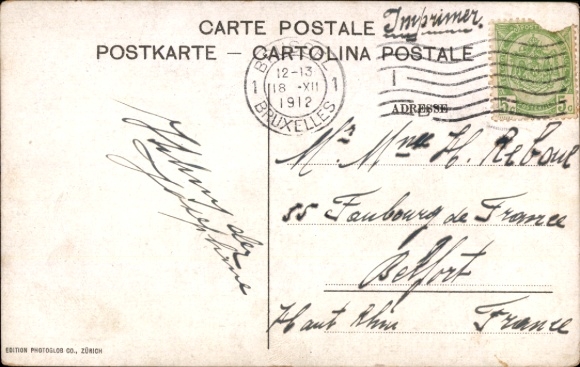 CARTE POSTALE
POSTKARTE – CARTOLINA POSTALE
Imprimer.
BRUSSEL
12-13
1 18 -XII 1
1912
BRUXELLES
5c 5c
ADRESSE
Mr. Mme H. Reboul
55 Faubourg de France
Belfort
Haut Rhin France
EDITION PHOTOGLOB CO., ZÜRICH